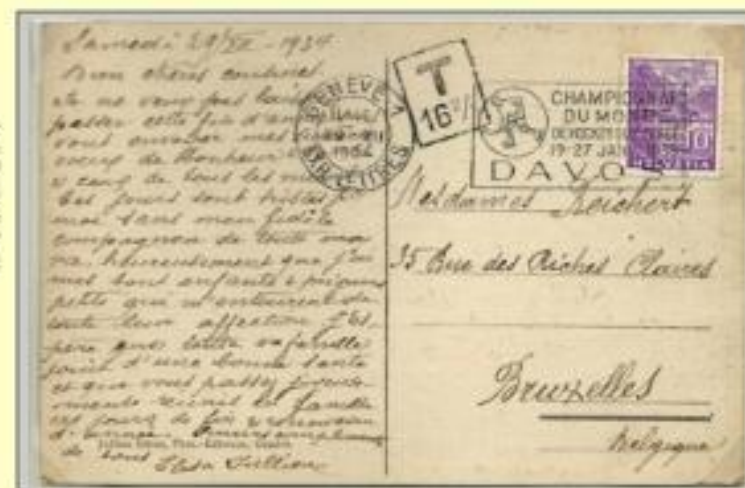 Samedi 29/XII - 1934
Bien chères cousines
Je ne veux pas
passer cette fin d'an
vous envoyer mes
voeux de Bonheur
ceux de tous les
Les jours sont tristes
moi sans mon fidèle
compagnon de toute ma
vie heureusement que j'ai
mes bons enfants &
petits qui m'entourent de
toute leur affection J'es-
père que toute la famille
jouit d'une bonne santé
et que vous passez
réunis en famille
ces jours de fin & renouveau
d'année.
de tous
Jullien
Jullien Frères, Phot.-Editeurs, Genève
GENÈVE
1934
T
16
CHAMPIONNATS
DU MONDE
DE HOCKEY SUR GLACE
19-27 JANV.
DAVOS
10
HELVETIA
Mesdames Reichert
35 Rue des Riches Claires
Bruxelles
Belgique